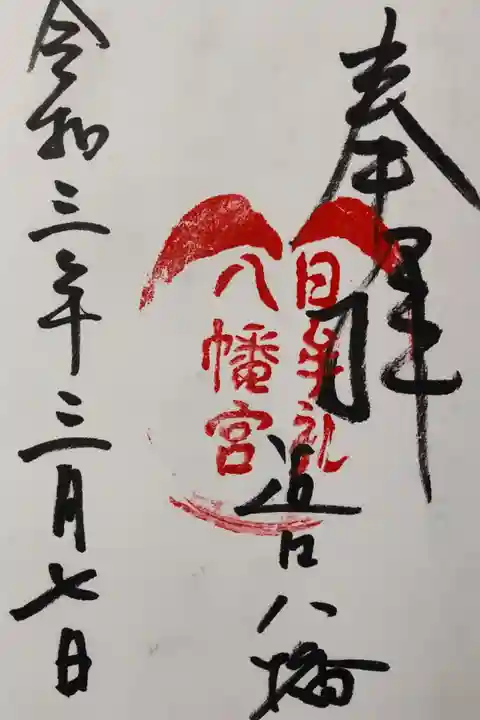 奉拝
日牟礼
八幡宮
近江八幡
令和三年三月七日